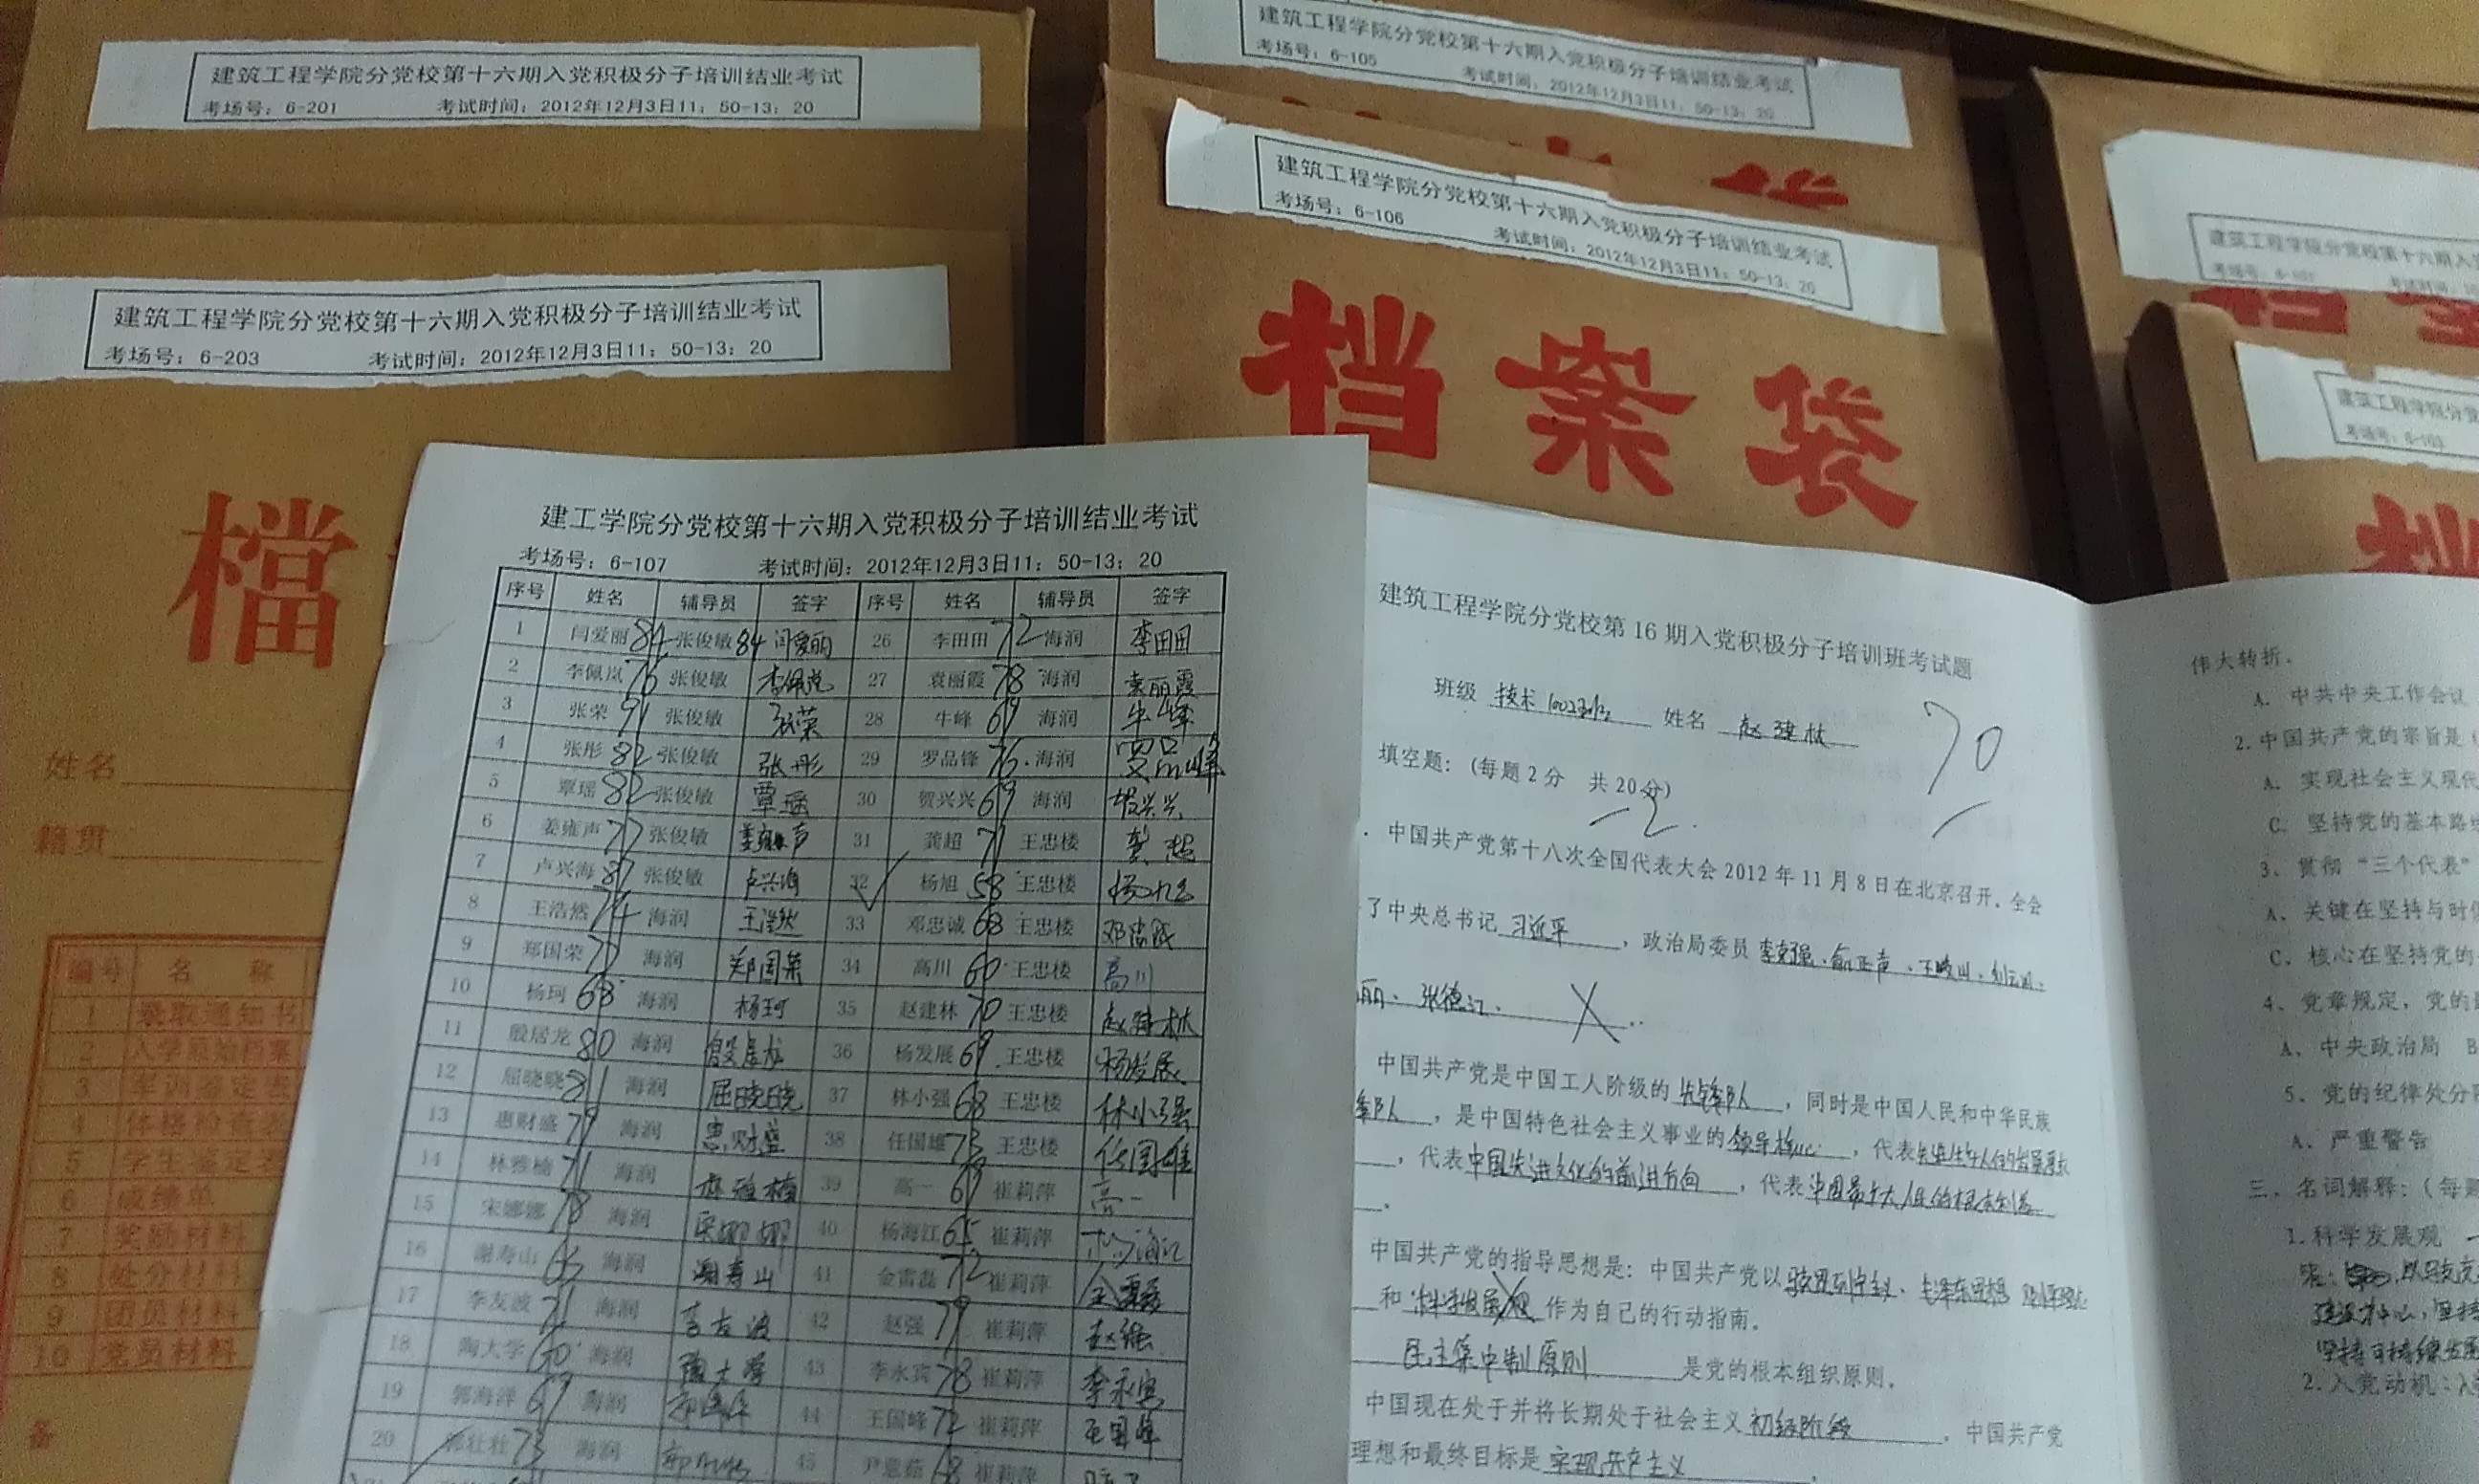 建筑工程学院分党校第十六期入党积极分子培训结业考试
考场号：6-201 考试时间：2012年12月3日11：50-13：20
建筑工程学院分党校第十六期入党积极分子培训结业考试
考场号：6-203 考试时间：2012年12月3日11：50-13：20
檔
姓名
籍贯
编号 名 称
1 录取通知书
2 入学原始档案
3 军训鉴定表
4 体格检查表
5 学生鉴定表
6 成绩单
7 奖励材料
8 处分材料
9 团员材料
10 党员材料
备
建筑工程学院分党校第十六期入党积极分子培训结业考试
考场号：6-105 考试时间：2012年12月3日11：50-13：20
建筑工程学院分党校第十六期入党积极分子培训结业考试
考场号：6-106 考试时间：2012年12月3日11：50-13：20
档案袋
建筑工程学院分党校第十六期入党
考场号： 考试时间：
建筑工程学院分党
考场号：6-103
档
建工学院分党校第十六期入党积极分子培训结业考试
考场号：6-107 考试时间：2012年12月3日11：50-13：20
序号 姓名 辅导员 签字 序号 姓名 辅导员 签字
1 闫爱丽 84 张俊敏 84 闫爱丽 26 李田田 72 海润 李田田
2 李佩岚 76 张俊敏 李佩岚 27 袁丽霞 78 海润 袁丽霞
3 张荣 91 张俊敏 张荣 28 牛峰 69 海润 牛峰
4 张彤 82 张俊敏 张彤 29 罗品锋 76 海润 罗品峰
5 覃瑶 82 张俊敏 覃瑶 30 贺兴兴 69 海润 贺兴兴
6 姜雍声 77 张俊敏 姜雍声 31 龚超 71 王忠楼 龚超
7 卢兴海 87 张俊敏 卢兴海 32 杨旭 58 王忠楼 杨旭
8 王浩然 74 海润 王浩然 33 邓忠诚 68 王忠楼 邓忠诚
9 郑国荣 77 海润 郑国荣 34 高川 60 王忠楼 高川
10 杨珂 68 海润 杨珂 35 赵建林 70 王忠楼 赵建林
11 殷居龙 80 海润 殷居龙 36 杨发展 69 王忠楼 杨发展
12 屈晓晓 81 海润 屈晓晓 37 林小强 68 王忠楼 林小强
13 惠财盛 79 海润 惠财盛 38 任国雄 73 王忠楼 任国雄
14 林雅楠 71 海润 林雅楠 39 高一 69 崔莉萍 高一
15 宋娜娜 78 海润 宋娜娜 40 杨海江 65 崔莉萍 杨海江
16 谢寿山 63 海润 谢寿山 41 金雷磊 72 崔莉萍 金雷磊
17 李友波 71 海润 李友波 42 赵强 79 崔莉萍 赵强
18 陶大学 60 海润 陶大学 43 李永宾 78 崔莉萍 李永宾
19 郭海洋 69 海润 郭海洋 44 王国峰 72 崔莉萍 王国峰
20 郭壮壮 73 海润 45 尹意茹 68 崔莉萍
建筑工程学院分党校第 16 期入党积极分子培训班考试题
班级 技术1002班 姓名 赵建林
70
填空题：（每题 2 分 共 20 分）
-2
中国共产党第十八次全国代表大会 2012 年 11 月 8 日在北京召开。全会
了中央总书记 习近平 ，政治局委员 李克强、俞正声、王岐山、刘云山、
丽、张德江、
中国共产党是中国工人阶级的 先锋队 ，同时是中国人民和中华民族
锋队 ，是中国特色社会主义事业的 领导核心 ，代表
，代表 中国先进文化的前进方向 ，代表 中国最广大人民的根本利益
。
中国共产党的指导思想是：中国共产党以 马克思列宁主义、毛泽东思想
和 科学发展观 作为自己的行动指南。
民主集中制原则 是党的根本组织原则。
中国现在处于并将长期处于社会主义 初级阶段 。中国共产党
理想和最终目标是 实现共产主义 。
伟大转折．
A．中共中央工作会议
2.中国共产党的宗旨是（
A．实现社会主义现代
C．坚持党的基本路线
3、贯彻“三个代表”
A、关键在坚持与时俱
C、核心在坚持党的
4、党章规定，党的最
A、中央政治局 B
5、党的纪律处分
A．严重警告
三、名词解释：（每题
1.科学发展观
2.入党动机：